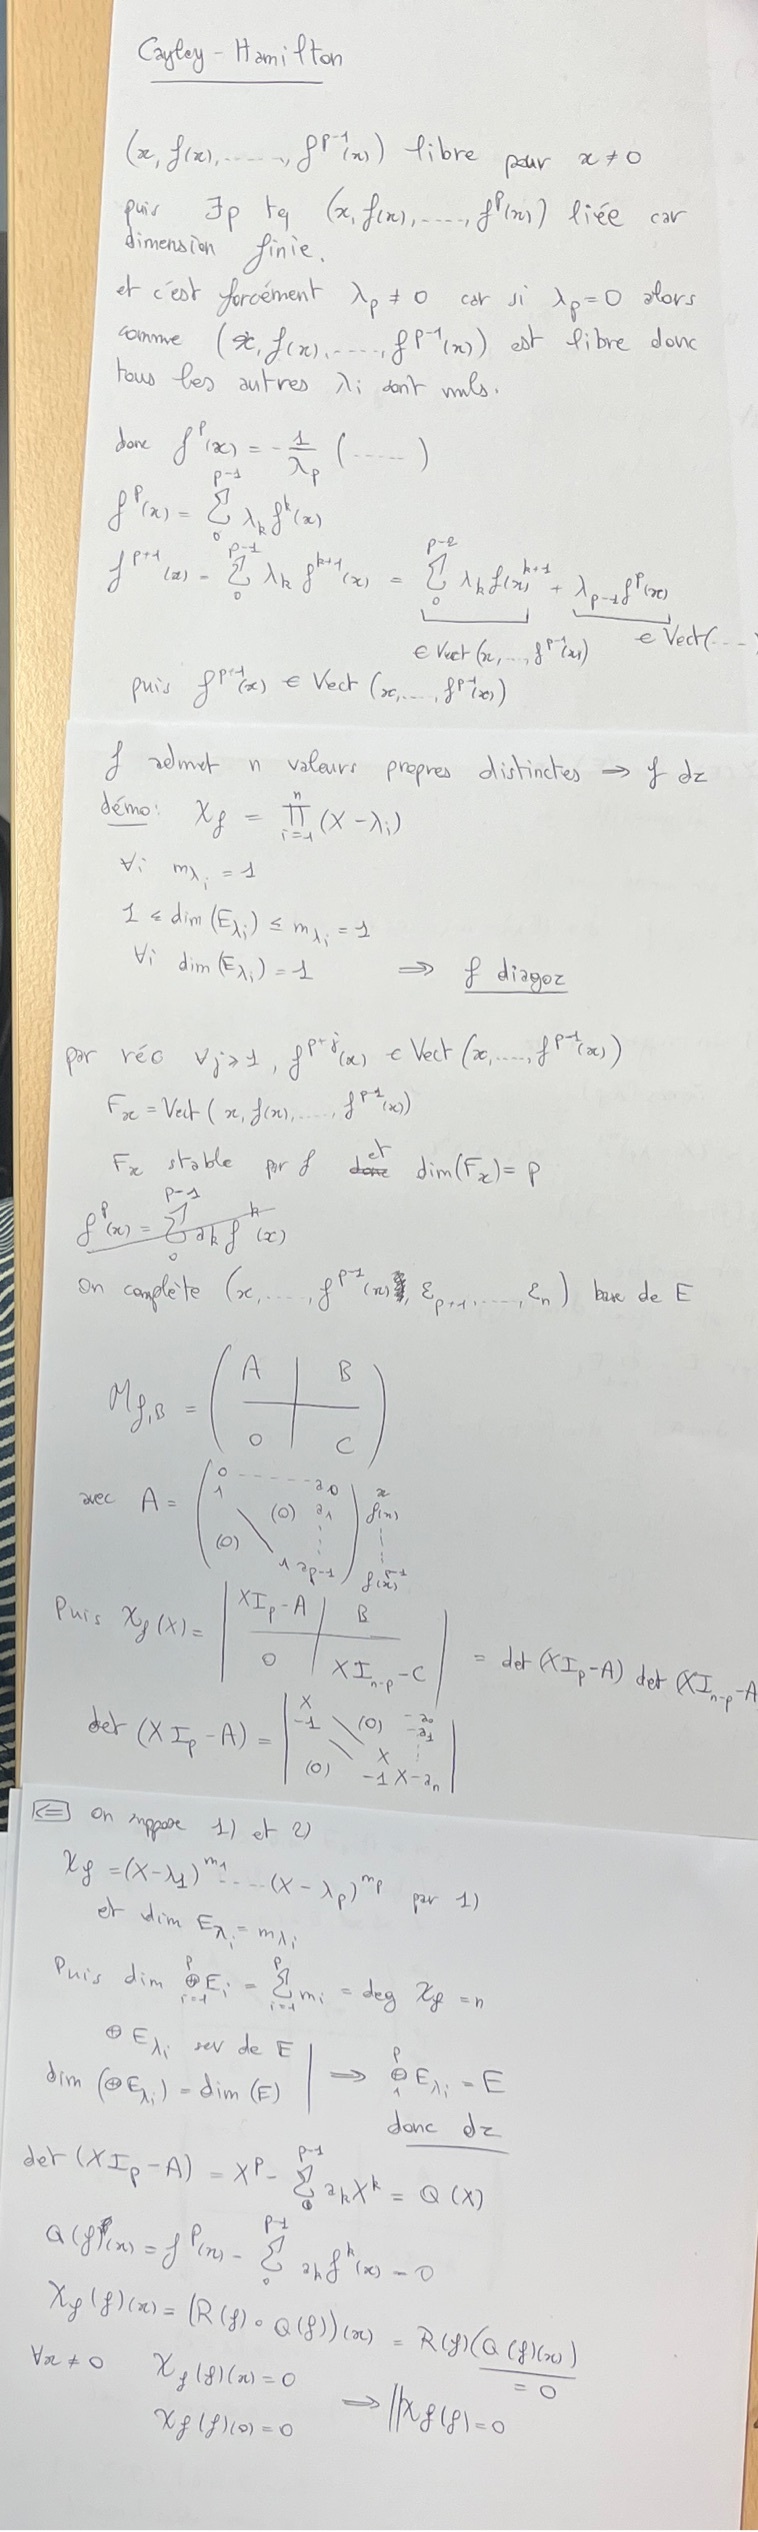 Cayley - Hamilton
(x, f(x), ....., f^{p-1}(x)) libre pour x ≠ 0
puis ∃p tq (x, f(x), ...., f^p(x)) liée car
dimension finie.
et c'est forcément λ_p ≠ 0 car si λ_p = 0 alors
comme (x, f(x), ...., f^{p-1}(x)) est libre donc
tous les autres λ_i sont nuls.
donc f^p(x) = -1/λ_p (.....)
f^p(x) = Σ_0^{p-1} λ_k f^k(x)
f^{p+1}(x) = Σ_0^{p-1} λ_k f^{k+1}(x) = Σ_0^{p-2} λ_k f(x)^{k+1} + λ_{p-1} f^p(x)
∈ Vect(x, .., f^{p-1}(x)) ∈ Vect(...
puis f^{p+1}(x) ∈ Vect(x, ...., f^{p-1}(x))
f admet n valeurs propres distinctes ⇒ f dz
démo: χ_f = Π_{i=1}^n (X - λ_i)
∀i m_{λ_i} = 1
1 ≤ dim(E_{λ_i}) ≤ m_{λ_i} = 1
∀i dim(E_{λ_i}) = 1 ⇒ f diagoz
par réc ∀j ≥ 1, f^{p+j}(x) ∈ Vect(x, ...., f^{p-1}(x))
F_x = Vect(x, f(x), ...., f^{p-1}(x))
F_x stable par f et dim(F_x) = p
f^p(x) = Σ_0^{p-1} a_k f^k(x)
On complète (x, ...., f^{p-1}(x), ε_{p+1}, ...., ε_n) base de E
M_{f,B} = ( A | B
0 | C )
avec A = ( 0 ------ a_0 ) x
1 (0) a_1 f(x)
(0) ⋮ ⋮
1 a_{p-1} f(x)^{p-1}
Puis χ_f(X) = | XI_p - A | B
0 | XI_{n-p} - C | = det(XI_p - A) det(XI_{n-p} - A
det(XI_p - A) = | X (0) -a_0
-1 -a_1
X ⋮
(0) -1 X-a_n |
⇐ On suppose 1) et 2)
χ_f = (X - λ_1)^{m_1} ..... (X - λ_p)^{m_p} par 1)
et dim E_{λ_i} = m_{λ_i}
Puis dim ⊕_{i=1}^p E_i = Σ_{i=1}^p m_i = deg χ_f = n
⊕ E_{λ_i} sev de E
dim(⊕E_{λ_i}) = dim(E) | ⇒ ⊕_1^p E_{λ_i} = E
donc dz
det(XI_p - A) = X^p - Σ_0^{p-1} a_k X^k = Q(X)
Q(f)(x) = f^p(x) - Σ_0^{p-1} a_k f^k(x) = 0
χ_f(f)(x) = (R(f) ∘ Q(f))(x) = R(f)(Q(f)(x))
= 0
∀x ≠ 0 χ_f(f)(x) = 0
χ_f(f)(0) = 0 ⇒ χ_f(f) = 0